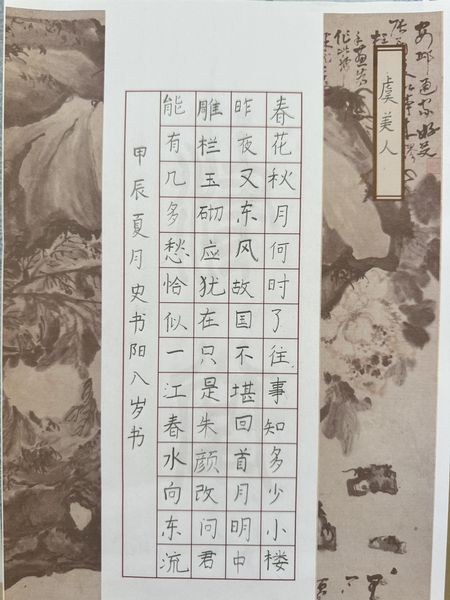 虞美人
春花秋月何时了往事知多少小楼
昨夜又东风故国不堪回首月明中
雕栏玉砌应犹在只是朱颜改问君
能有几多愁恰似一江春水向东流
甲辰夏月史书阳八岁书